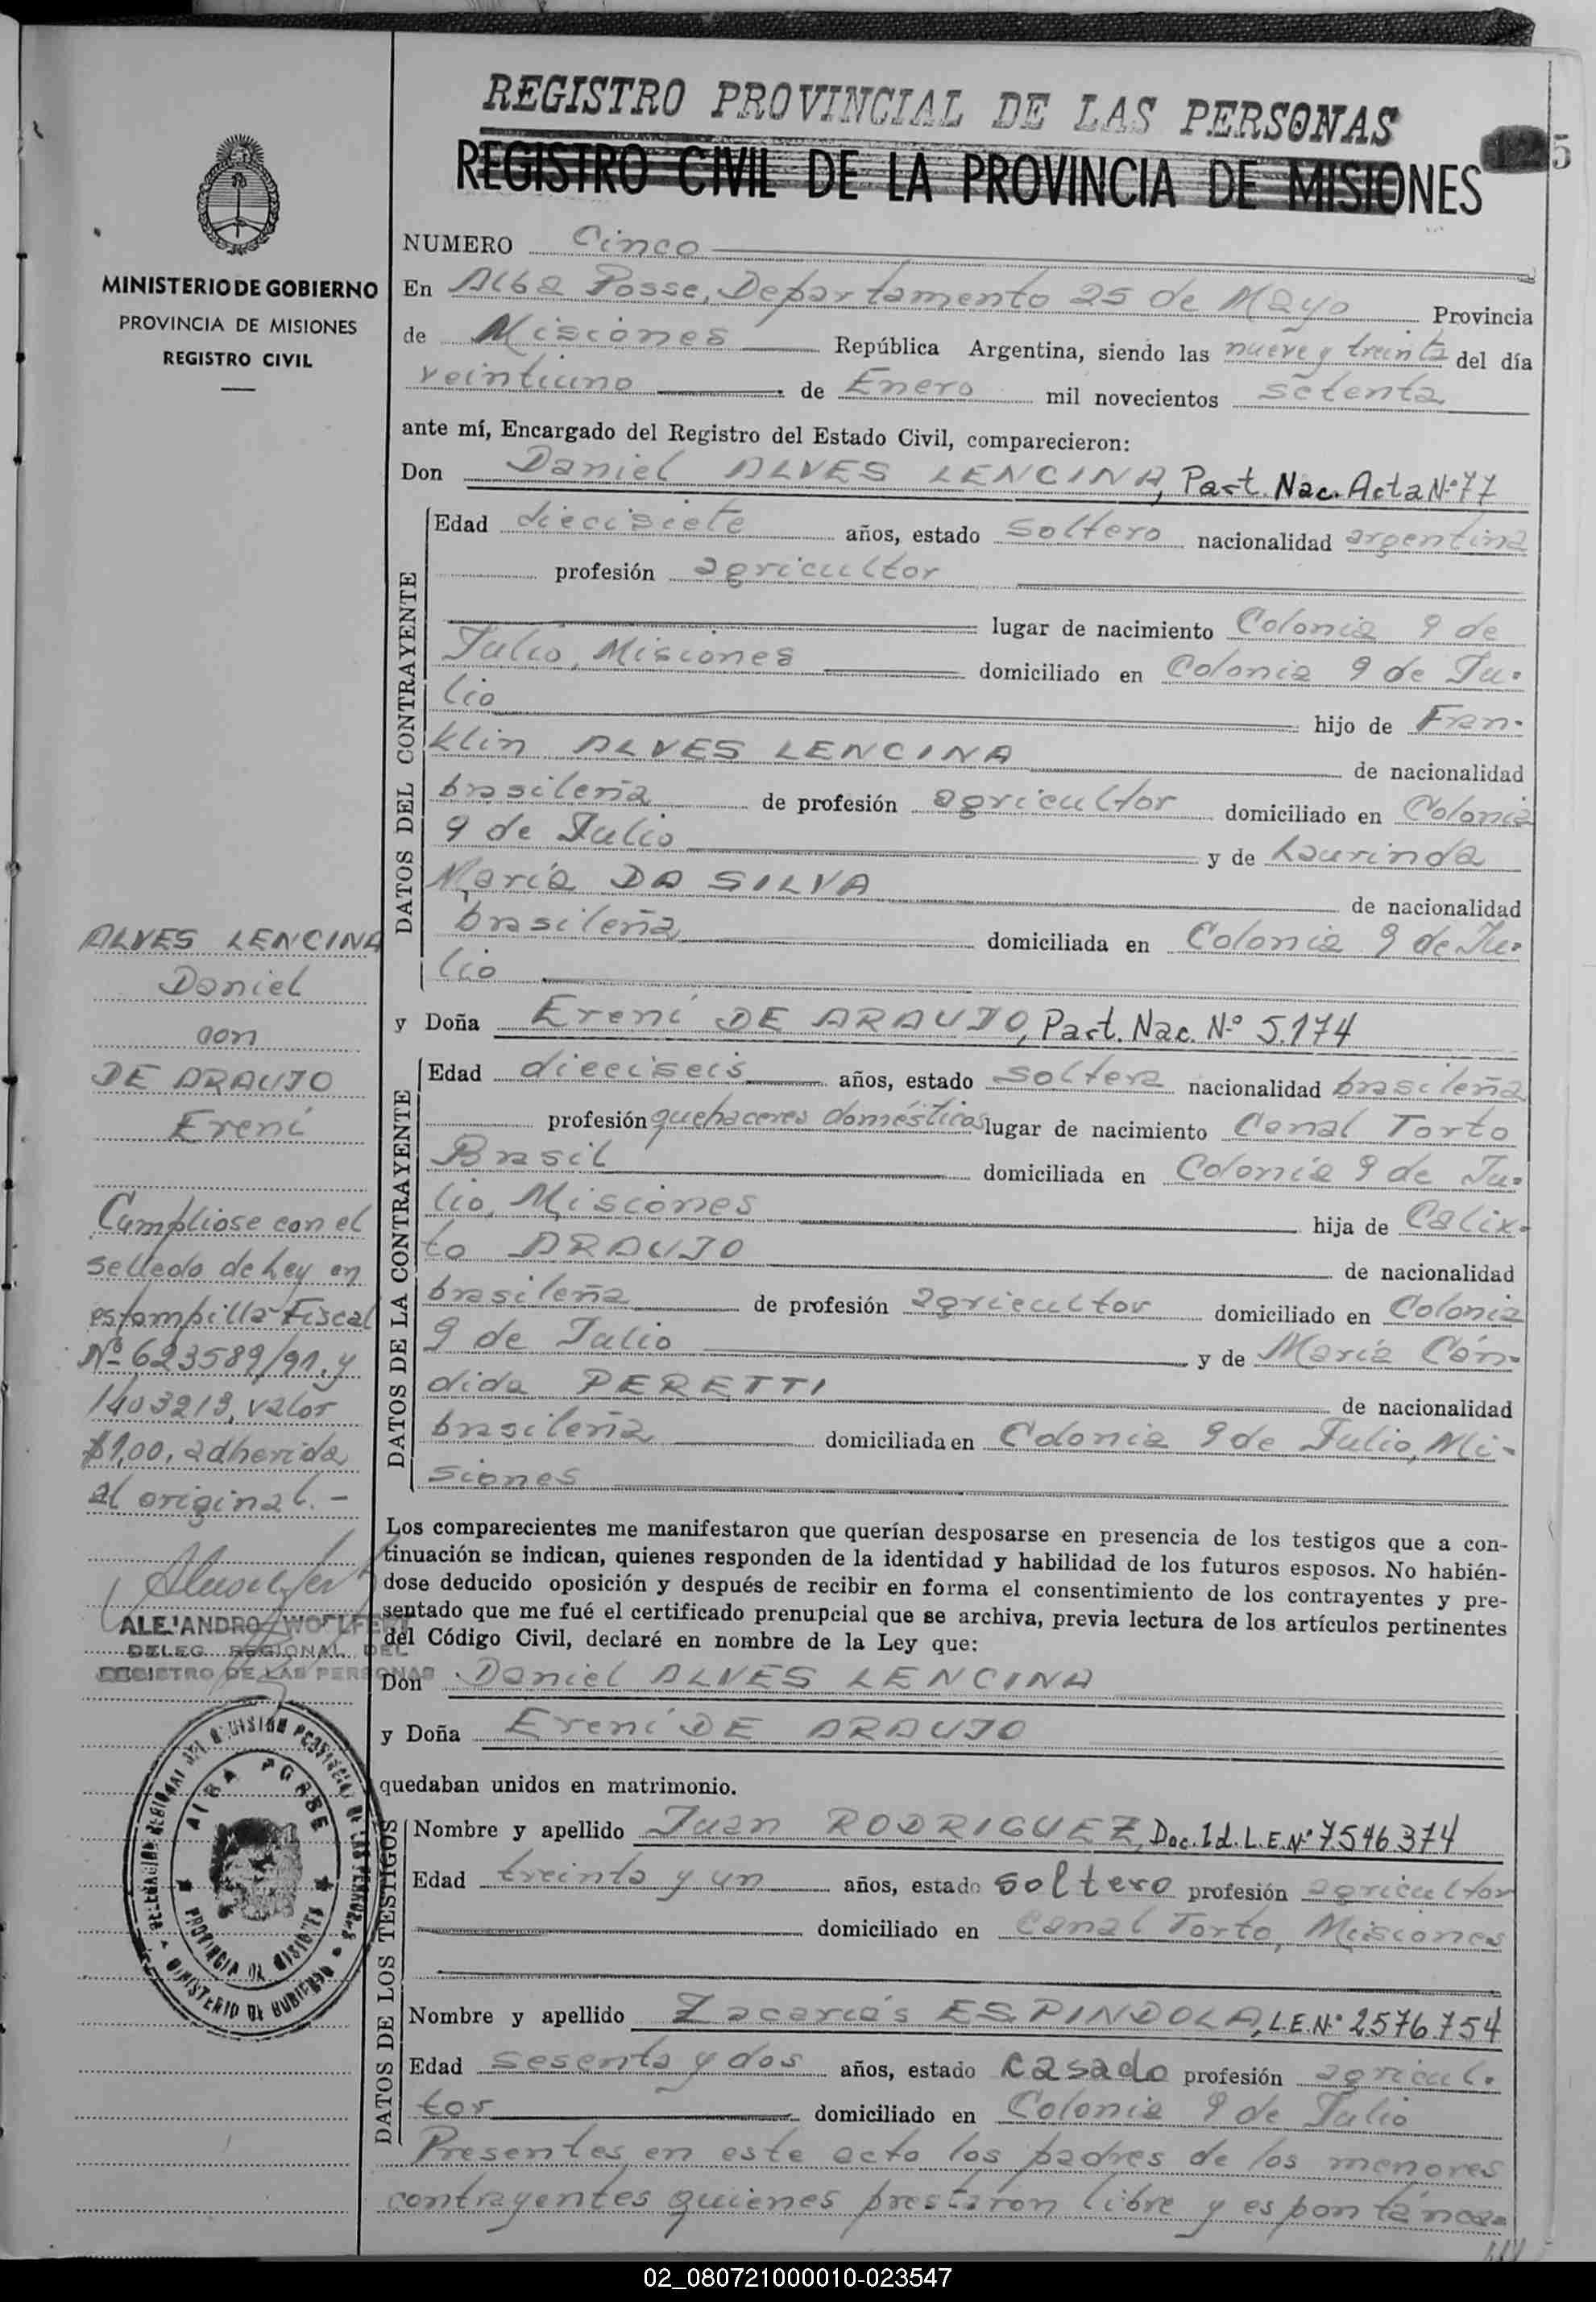 REGISTRO PROVINCIAL DE LAS PERSONAS
REGISTRO CIVIL DE LA PROVINCIA DE MISIONES
5
MINISTERIO DE GOBIERNO
PROVINCIA DE MISIONES
REGISTRO CIVIL
NUMERO Cinco
En Alba Posse, Departamento 25 de Mayo Provincia
de Misiones República Argentina, siendo las nueve y treinta del día
veintiuno de Enero mil novecientos setenta
ante mí, Encargado del Registro del Estado Civil, comparecieron:
Don Daniel ALVES LENCINA, Part. Nac. Acta Nº 77
DATOS DEL CONTRAYENTE
Edad diecisiete años, estado soltero nacionalidad argentina
profesión agricultor
lugar de nacimiento Colonia 9 de
Julio, Misiones domiciliado en Colonia 9 de Ju-
lio hijo de Fran-
klin ALVES LENCINA de nacionalidad
brasileña de profesión agricultor domiciliado en Colonia
9 de Julio y de Laurinda
María DA SILVA de nacionalidad
brasileña domiciliada en Colonia 9 de Ju-
lio
y Doña Erení DE ARAUJO, Part. Nac. Nº 5.174
DATOS DE LA CONTRAYENTE
Edad dieciseis años, estado soltera nacionalidad brasileña
profesión quehaceres domésticos lugar de nacimiento Canal Torto
Brasil domiciliada en Colonia 9 de Ju-
lio, Misiones hija de Calix-
to ARAUJO de nacionalidad
brasileña de profesión agricultor domiciliado en Colonia
9 de Julio y de María Cán-
dida PERETTI de nacionalidad
brasileña domiciliada en Colonia 9 de Julio, Mi-
siones
Los comparecientes me manifestaron que querían desposarse en presencia de los testigos que a con-
tinuación se indican, quienes responden de la identidad y habilidad de los futuros esposos. No habién-
dose deducido oposición y después de recibir en forma el consentimiento de los contrayentes y pre-
sentado que me fué el certificado prenupcial que se archiva, previa lectura de los artículos pertinentes
del Código Civil, declaré en nombre de la Ley que:
Don Daniel ALVES LENCINA
y Doña Erení DE ARAUJO
quedaban unidos en matrimonio.
DATOS DE LOS TESTIGOS
Nombre y apellido Juan RODRIGUEZ, Doc. Id. L.E. Nº 7.546.374
Edad treinta y un años, estado soltero profesión agricultor
domiciliado en Canal Torto, Misiones
Nombre y apellido Zacarías ESPINDOLA, L.E. Nº 2.576.754
Edad sesenta y dos años, estado casado profesión agricul-
tor domiciliado en Colonia 9 de Julio
Presentes en este acto los padres de los menores
contrayentes quienes prestaron libre y espontánea-
ALVES LENCINA
Daniel
con
DE ARAUJO
Erení
Cumpliose con el
sellado de Ley en
estampilla Fiscal
Nº 623589/91, y
1403213, valor
$1,00, adherida
al original.-
ALEJANDRO WOLFFERT
DELEG. REGIONAL DEL
REGISTRO DE LAS PERSONAS
ALBA POSSE
PROVINCIA DE MISIONES
MINISTERIO DE GOBIERNO
02_080721000010-023547